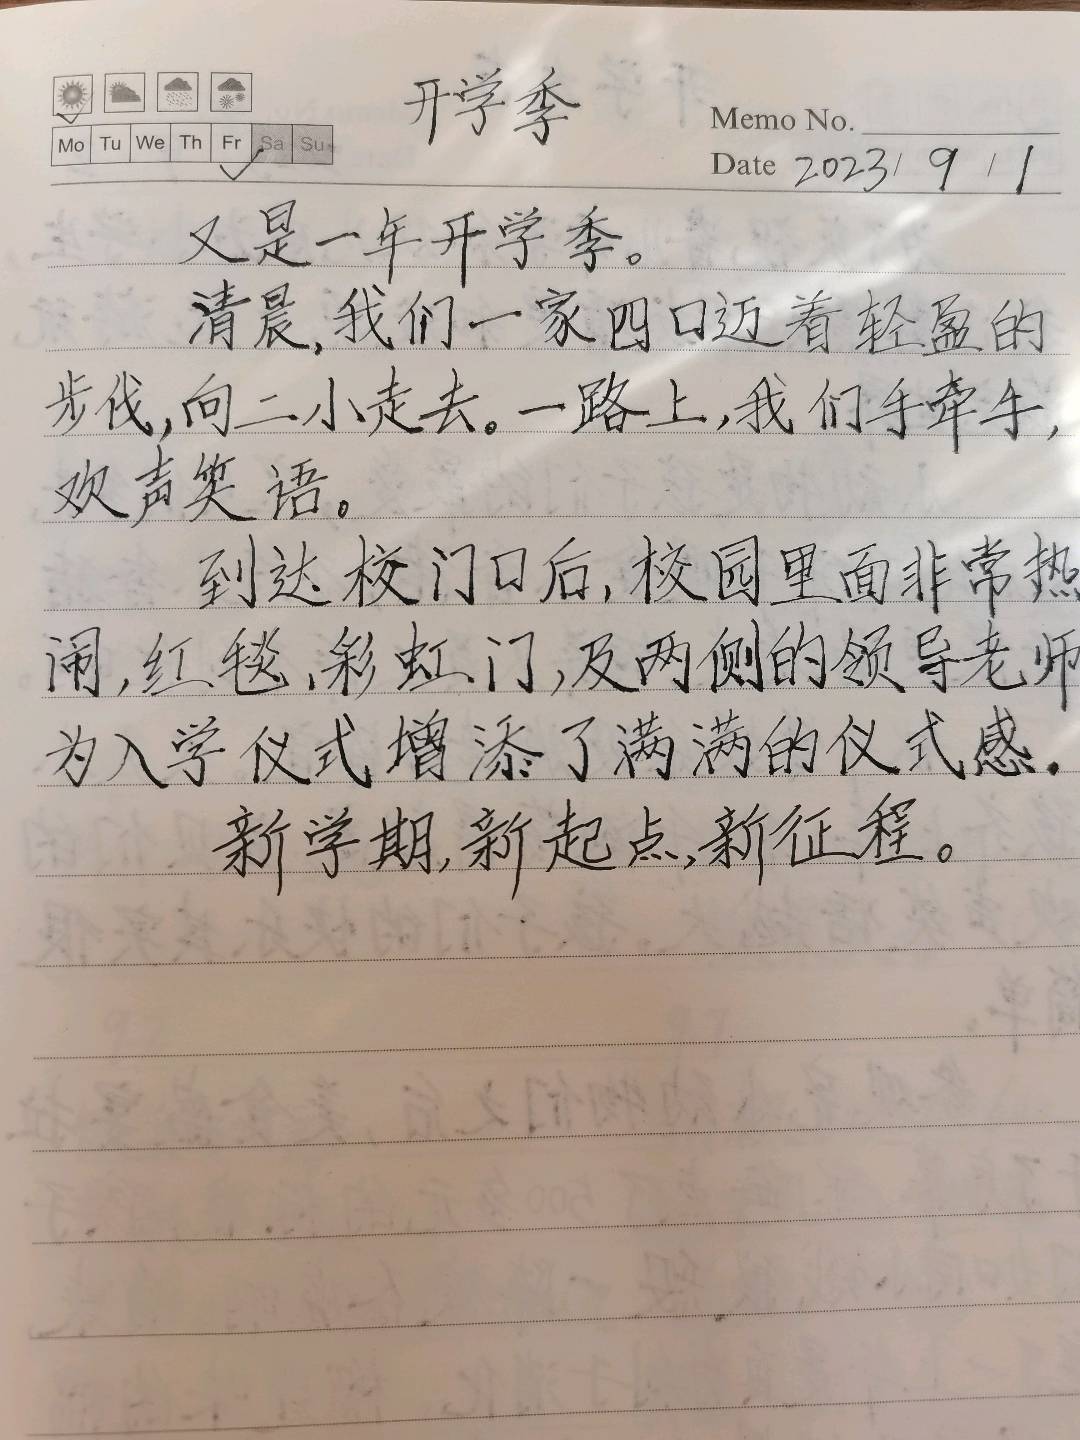 开学季
Memo No.
Mo Tu We Th Fr Sa Su
Date 2023/9/1
又是一年开学季。
清晨,我们一家四口迈着轻盈的
步伐,向二小走去。一路上,我们手牵手,
欢声笑语。
到达校门口后,校园里面非常热
闹,红毯、彩虹门,及两侧的领导老师
为入学仪式增添了满满的仪式感.
新学期,新起点,新征程。